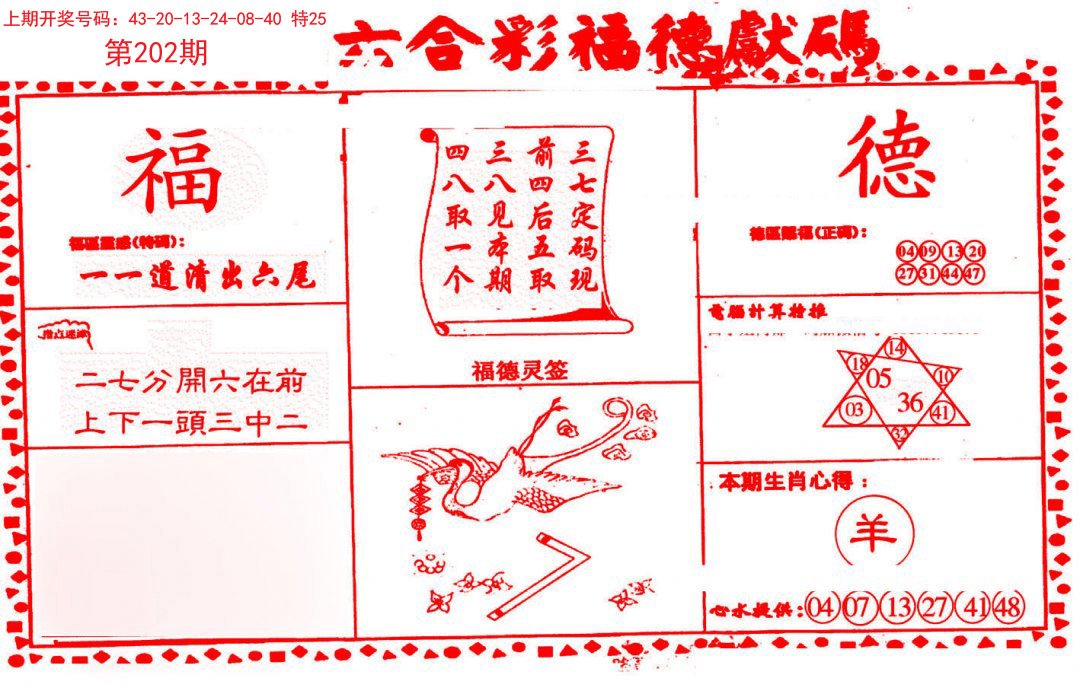 上期开奖号码：43-20-13-24-08-40 特25
第202期
六合彩福德獻碼
福
福區靈感(特碼)：
一一道清出六尾
指点迷津
二七分開六在前
上下一頭三中二
三七定码现
前四后五取
三八见本期
四八取一个
福德灵签
德
德區賜福(正碼)：
04 09 13 20
27 31 44 47
電腦計算精推
14
18 05 10
03 36 41
32
本期生肖心得：
羊
心水提供：04 07 13 27 41 48